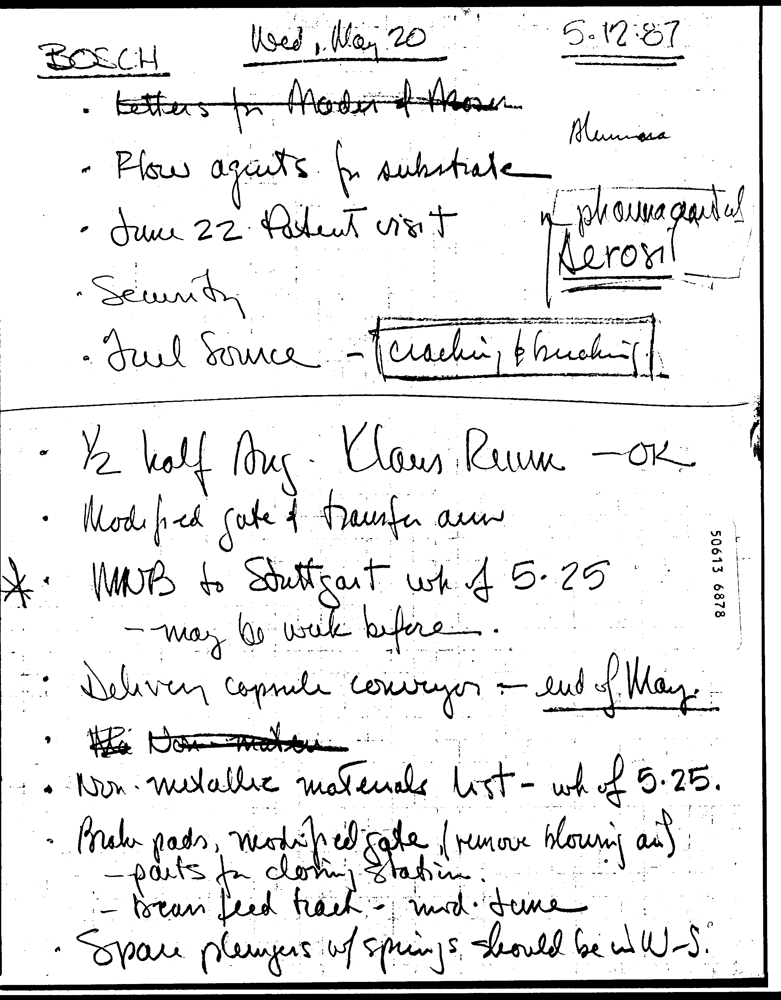 BOSCH
Wed, May 20
5-12-87
• Letters for Mader &
• Flow agents for substrate
Alumina
• June 22 Patent visit
pharmaceutical
Aerosil
• Security
• Fuel Source - cracking & breaking
• 1/2 half Aug. Klaus Rumm - OK
• Modified gate & transfer arm
* • MNB to Stuttgart wk of 5-25
- may be week before.
50613 6878
• Delivery capsule conveyor - end of May.
• Non-mater
• Non-metallic materials list - wk of 5-25.
• Brake pads, modified gate, (remove blowing air)
- parts for closing station.
- Bean feed track - mid-June
• Spare plungers w/ springs should be in W-S.